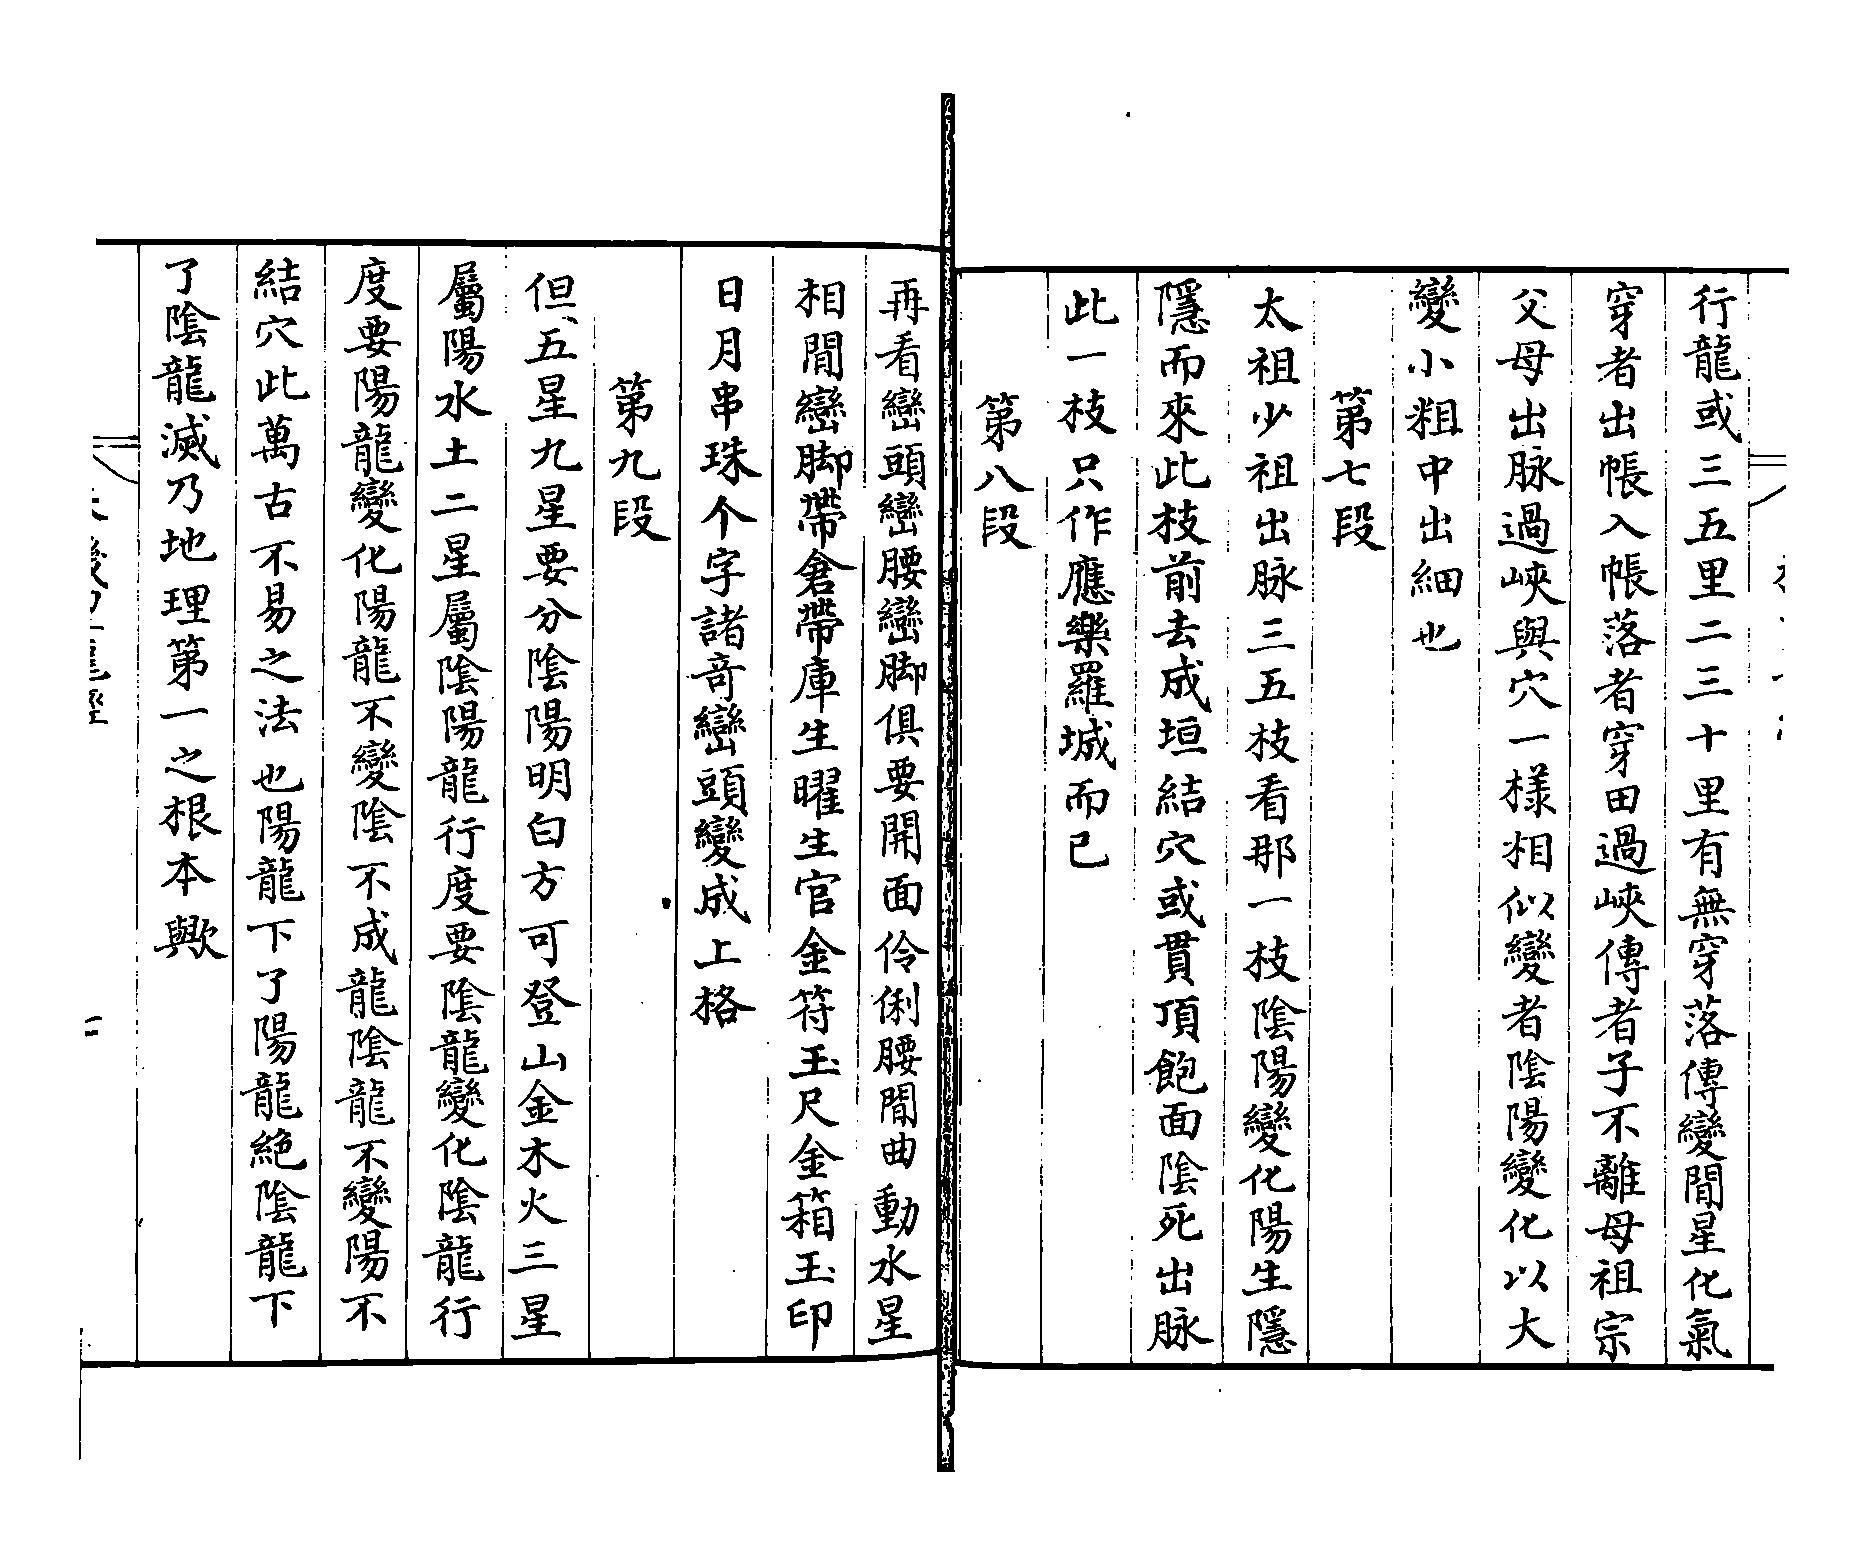 行龍或三五里二三十里有無穿落傳變間星化氣
穿者出帳入帳落者穿田過峽傳者子不離母祖宗
父母出脉過峽與穴一樣相似變者陰陽變化以大
變小粗中出細也
第七段
太祖少祖出脉三五枝看那一枝陰陽變化陽生隱
隱而來此枝前去成垣結穴或貫頂飽面陰死出脉
此一枝只作應樂羅城而已
第八段
再看巒頭巒腰巒脚俱要開面伶俐腰間曲動水星
相間巒脚帶倉帶庫生曜生官金符玉尺金箱玉印
日月串珠个字諸奇巒頭變成上格
第九段
但五星九星要分陰陽明白方可登山金木火三星
屬陽水土二星屬陰陽龍行度要陰龍變化陰龍行
度要陽龍變化陽龍不變陰不成龍陰龍不變陽不
結穴此萬古不易之法也陽龍下了陽龍絶陰龍下
了陰龍滅乃地理第一之根本歟
二